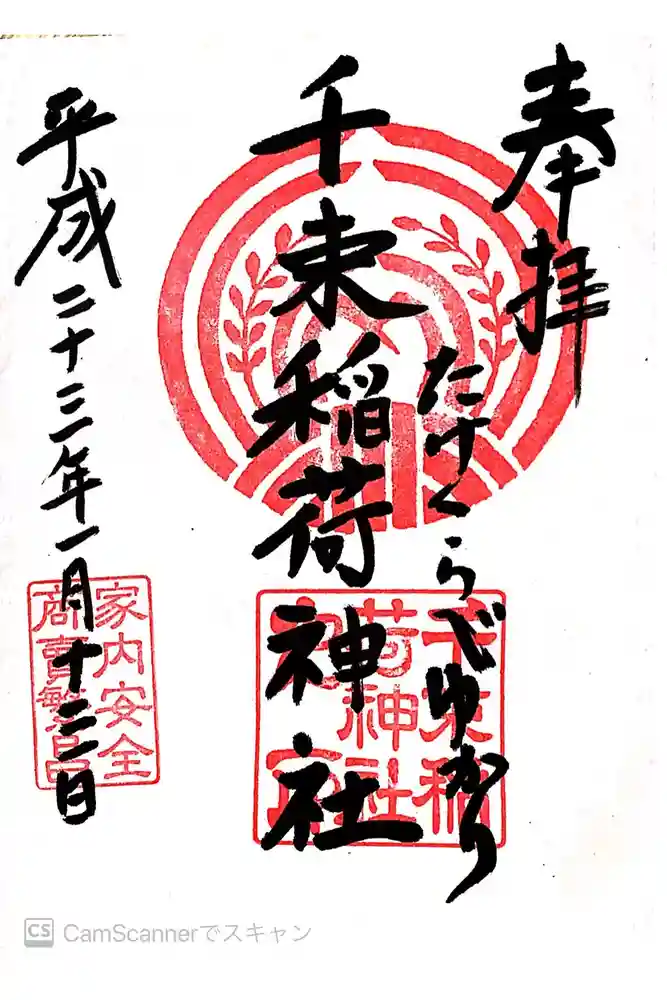 奉拝
たけくらべゆかり
千束稲荷神社
平成二十三年一月十三日
千束稲
荷神社
家内安全
商賣繁昌
CS CamScannerでスキャン